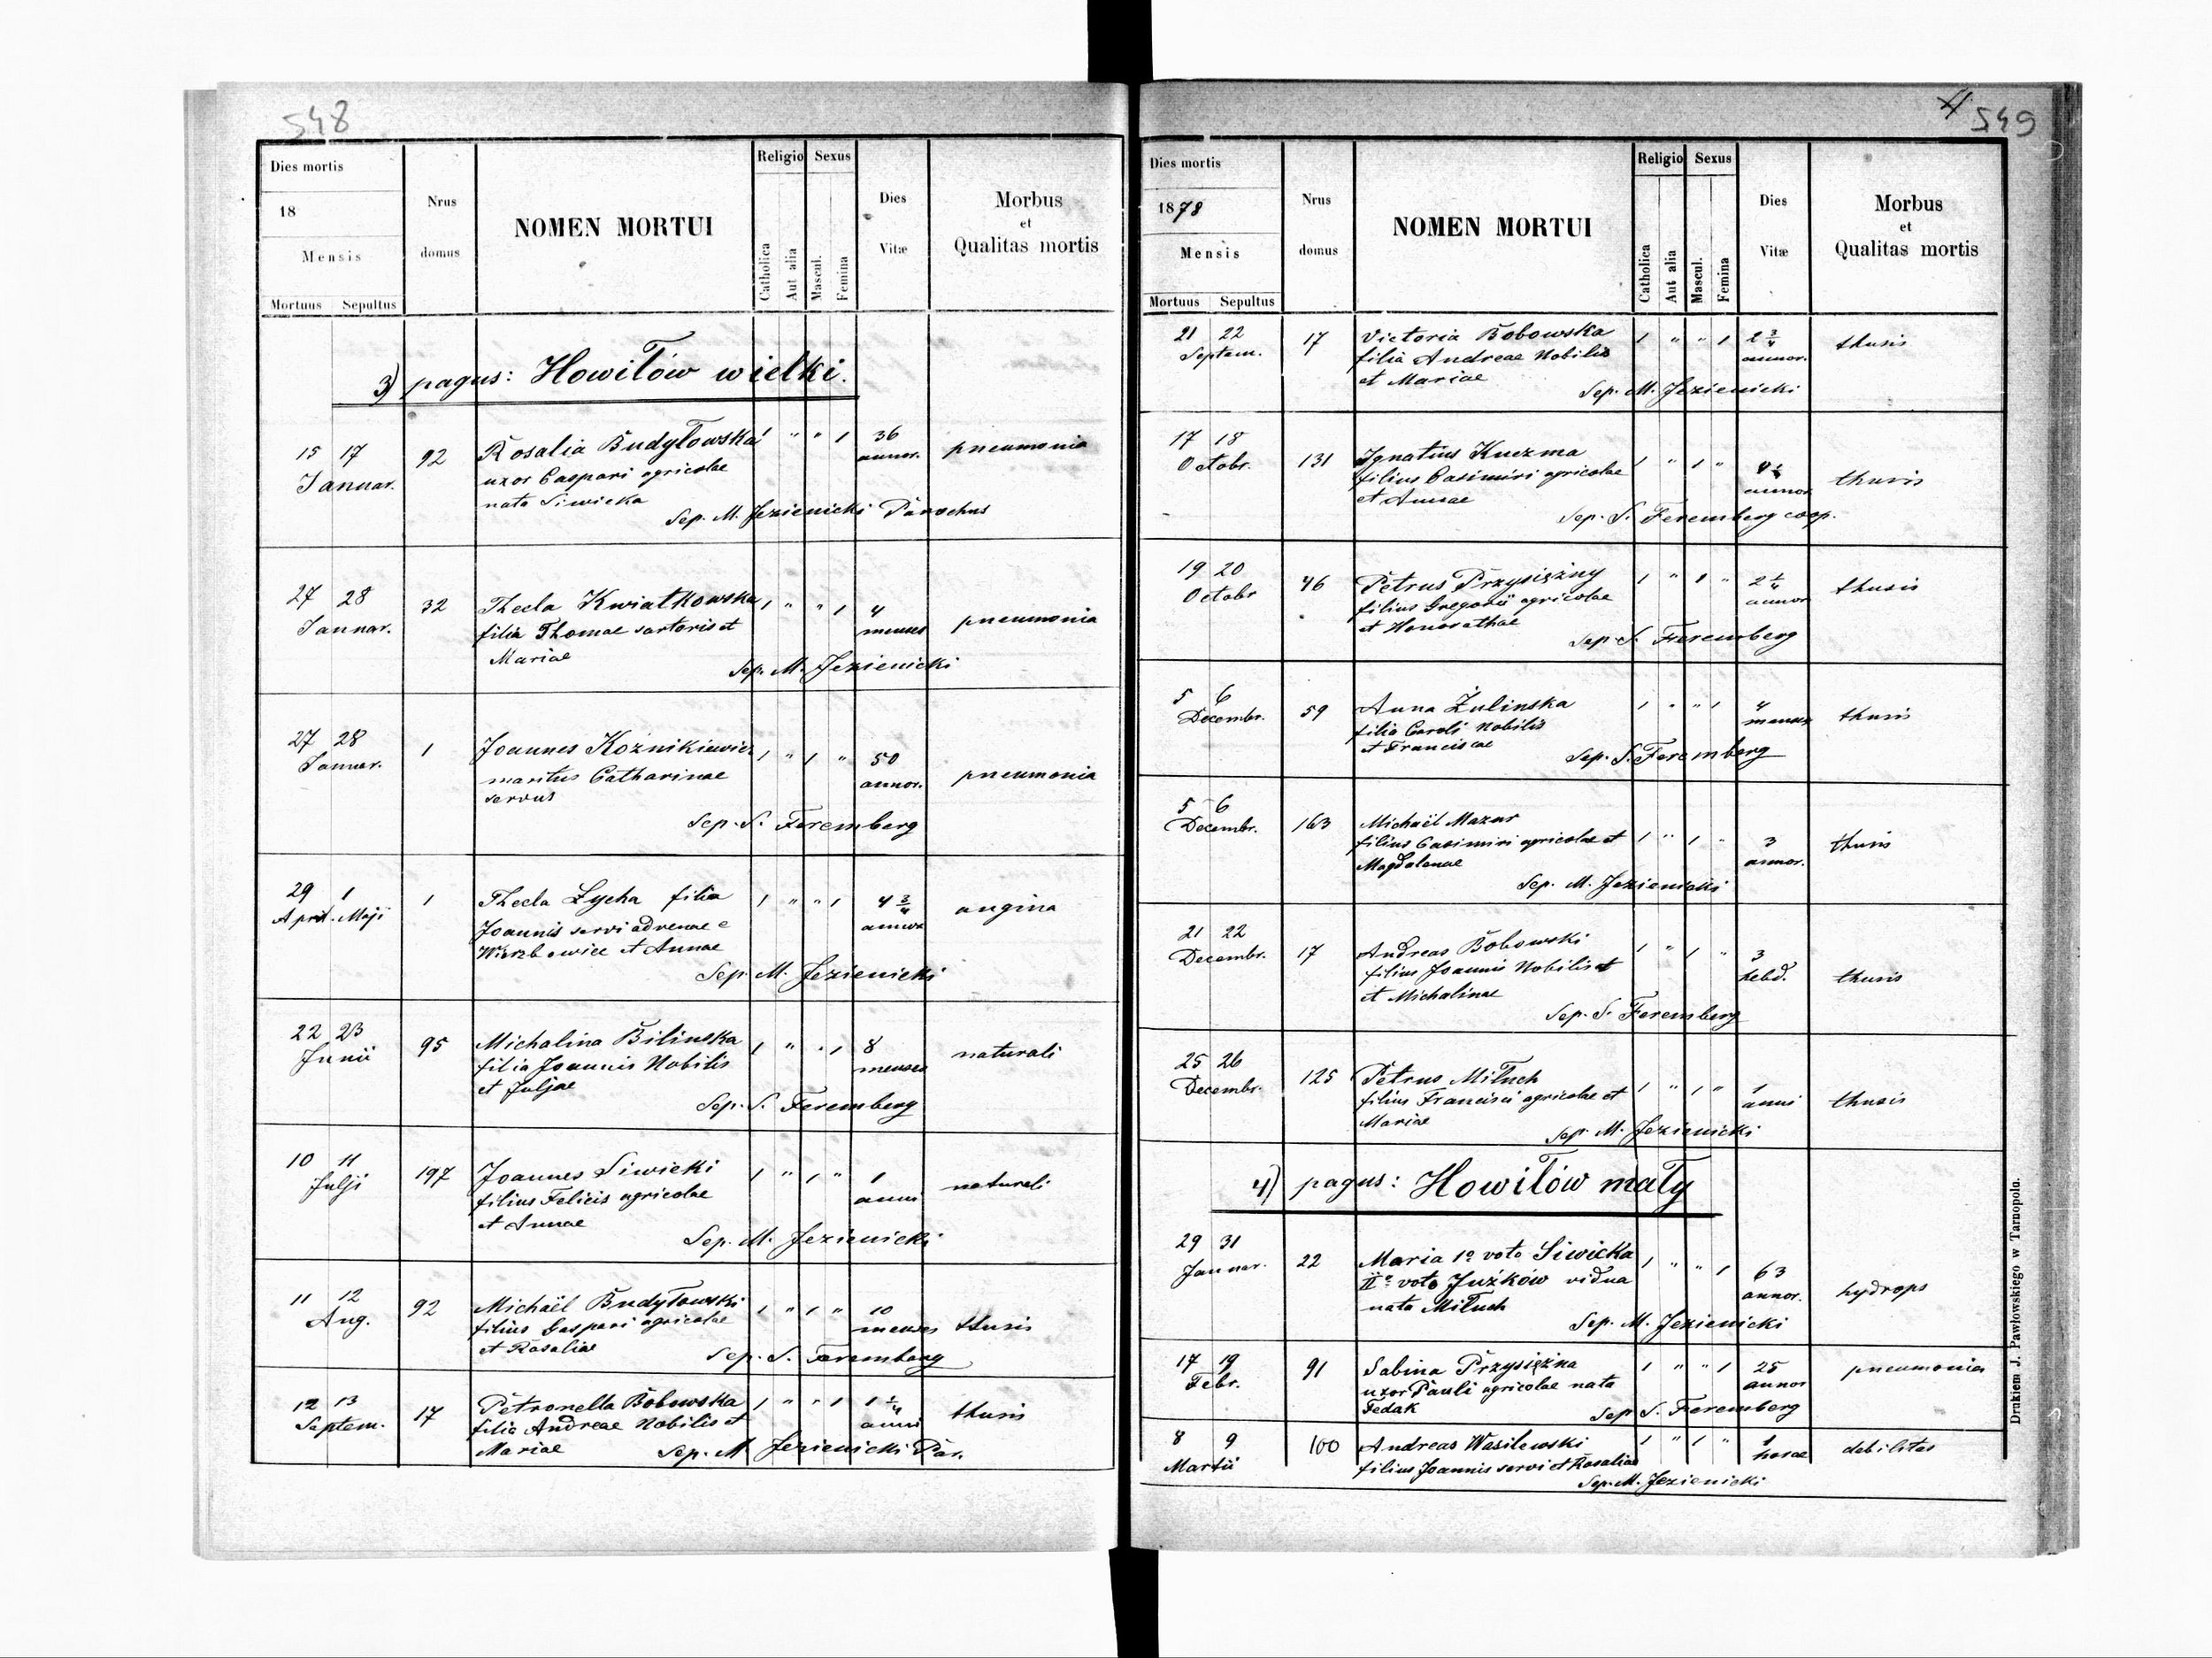 548
Dies mortis
18
Mensis
Mortuus Sepultus
Nrus domus
NOMEN MORTUI
Religio
Catholica
Aut alia
Sexus
Mascul.
Femina
Dies Vitæ
Morbus et Qualitas mortis
3) pagus: Howiłów wielki.
15 17 92 Rosalia Budyłowska 1 " " 1 36 pneumonia
Januar. uxor Caspari agricolae annor.
nata Siwicka
Sep. M. Jezienicki Parochus
27 28 32 Thecla Kwiatkowska 1 " " 1 4 pneumonia
Januar. filia Thomae sartoris et menses
Mariae
Sep. M. Jezienicki
27 28 1 Joannes Koźnikiewicz 1 " 1 " 50 pneumonia
Januar. maritus Catharinae annor.
servus
Sep. S. Feremberg
29 1 1 Thecla Łycha filia 1 " " 1 4 3/4 angina
April. Maji Joannis servi advenae e annor
Wierzbowiec et Annae
Sep. M. Jezienicki
22 23 95 Michalina Bilinska 1 " " 1 8 naturali
Junii filia Joannis Nobilis menses
et Juljae
Sep. S. Feremberg
10 11 197 Joannes Siwicki 1 " 1 " 1 naturali
Julji filius Felicis agricolae anni
et Annae
Sep. M. Jezienicki
11 12 92 Michaël Budyłowski 1 " 1 " 10 thusis
Aug. filius Gaspari agricolae menses
et Rosaliae
Sep. S. Feremberg
12 13 17 Petronella Bobowska 1 " " 1 1 1/4 thusis
Septem. filia Andreae Nobilis et anni
Mariae Sep. M. Jezienicki Par.
549
Dies mortis
1878
Mensis
Mortuus Sepultus
Nrus domus
NOMEN MORTUI
Religio
Catholica
Aut alia
Sexus
Mascul.
Femina
Dies Vitæ
Morbus et Qualitas mortis
21 22 17 Victoria Bobowska 1 " " 1 2 3/4 thusis
Septem. filia Andreae Nobilis annor.
et Mariae
Sep. M. Jezienicki
17 18 131 Ignatius Kuczma 1 " 1 " thusis
Octobr. filius Casimiri agricolae annor
et Annae
Sep. S. Feremberg coop.
19 20 46 Petrus Przysiężny 1 " 1 " 2 1/4 thusis
Octobr filius Gregorii agricolae annor
et Honorathae
Sep S. Feremberg
5 6 59 Anna Żulinska 1 " " 1 4 thusis
Decembr. filia Caroli Nobilis menses
et Franciscae
Sep. S. Feremberg
5 6 163 Michaël Mazur 1 " 1 " 3 thusis
Decembr. filius Casimiri agricolae et annor.
Magdalenae
Sep. M. Jezienicki
21 22 17 Andreas Bobowski 1 " 1 " 3 thusis
Decembr. filius Joannis Nobilis et hebd.
et Michalinae
Sep. S. Feremberg
25 26 125 Petrus Miłuch 1 " 1 " 1 thusis
Decembr. filius Francisci agricolae et anni
Mariae
Sep. M. Jezienicki
4) pagus: Howiłów mały
29 31 22 Maria 1o voto Siwicka 1 " " 1 63 hydrops
Januar. IIo voto Juźków vidua annor.
nata Miłuch
Sep. M. Jezienicki
17 19 91 Sabina Przysiężna 1 " " 1 25 pneumonia
Febr. uxor Pauli agricolae nata annor
Fedak Sep S. Feremberg
8 9 100 Andreas Wasilewski 1 " 1 " 1 debilitas
Martii filius Joannis servi et Rosaliae horae
Sep. M. Jezienicki
Drukiem J. Pawłowskiego w Tarnopolu.